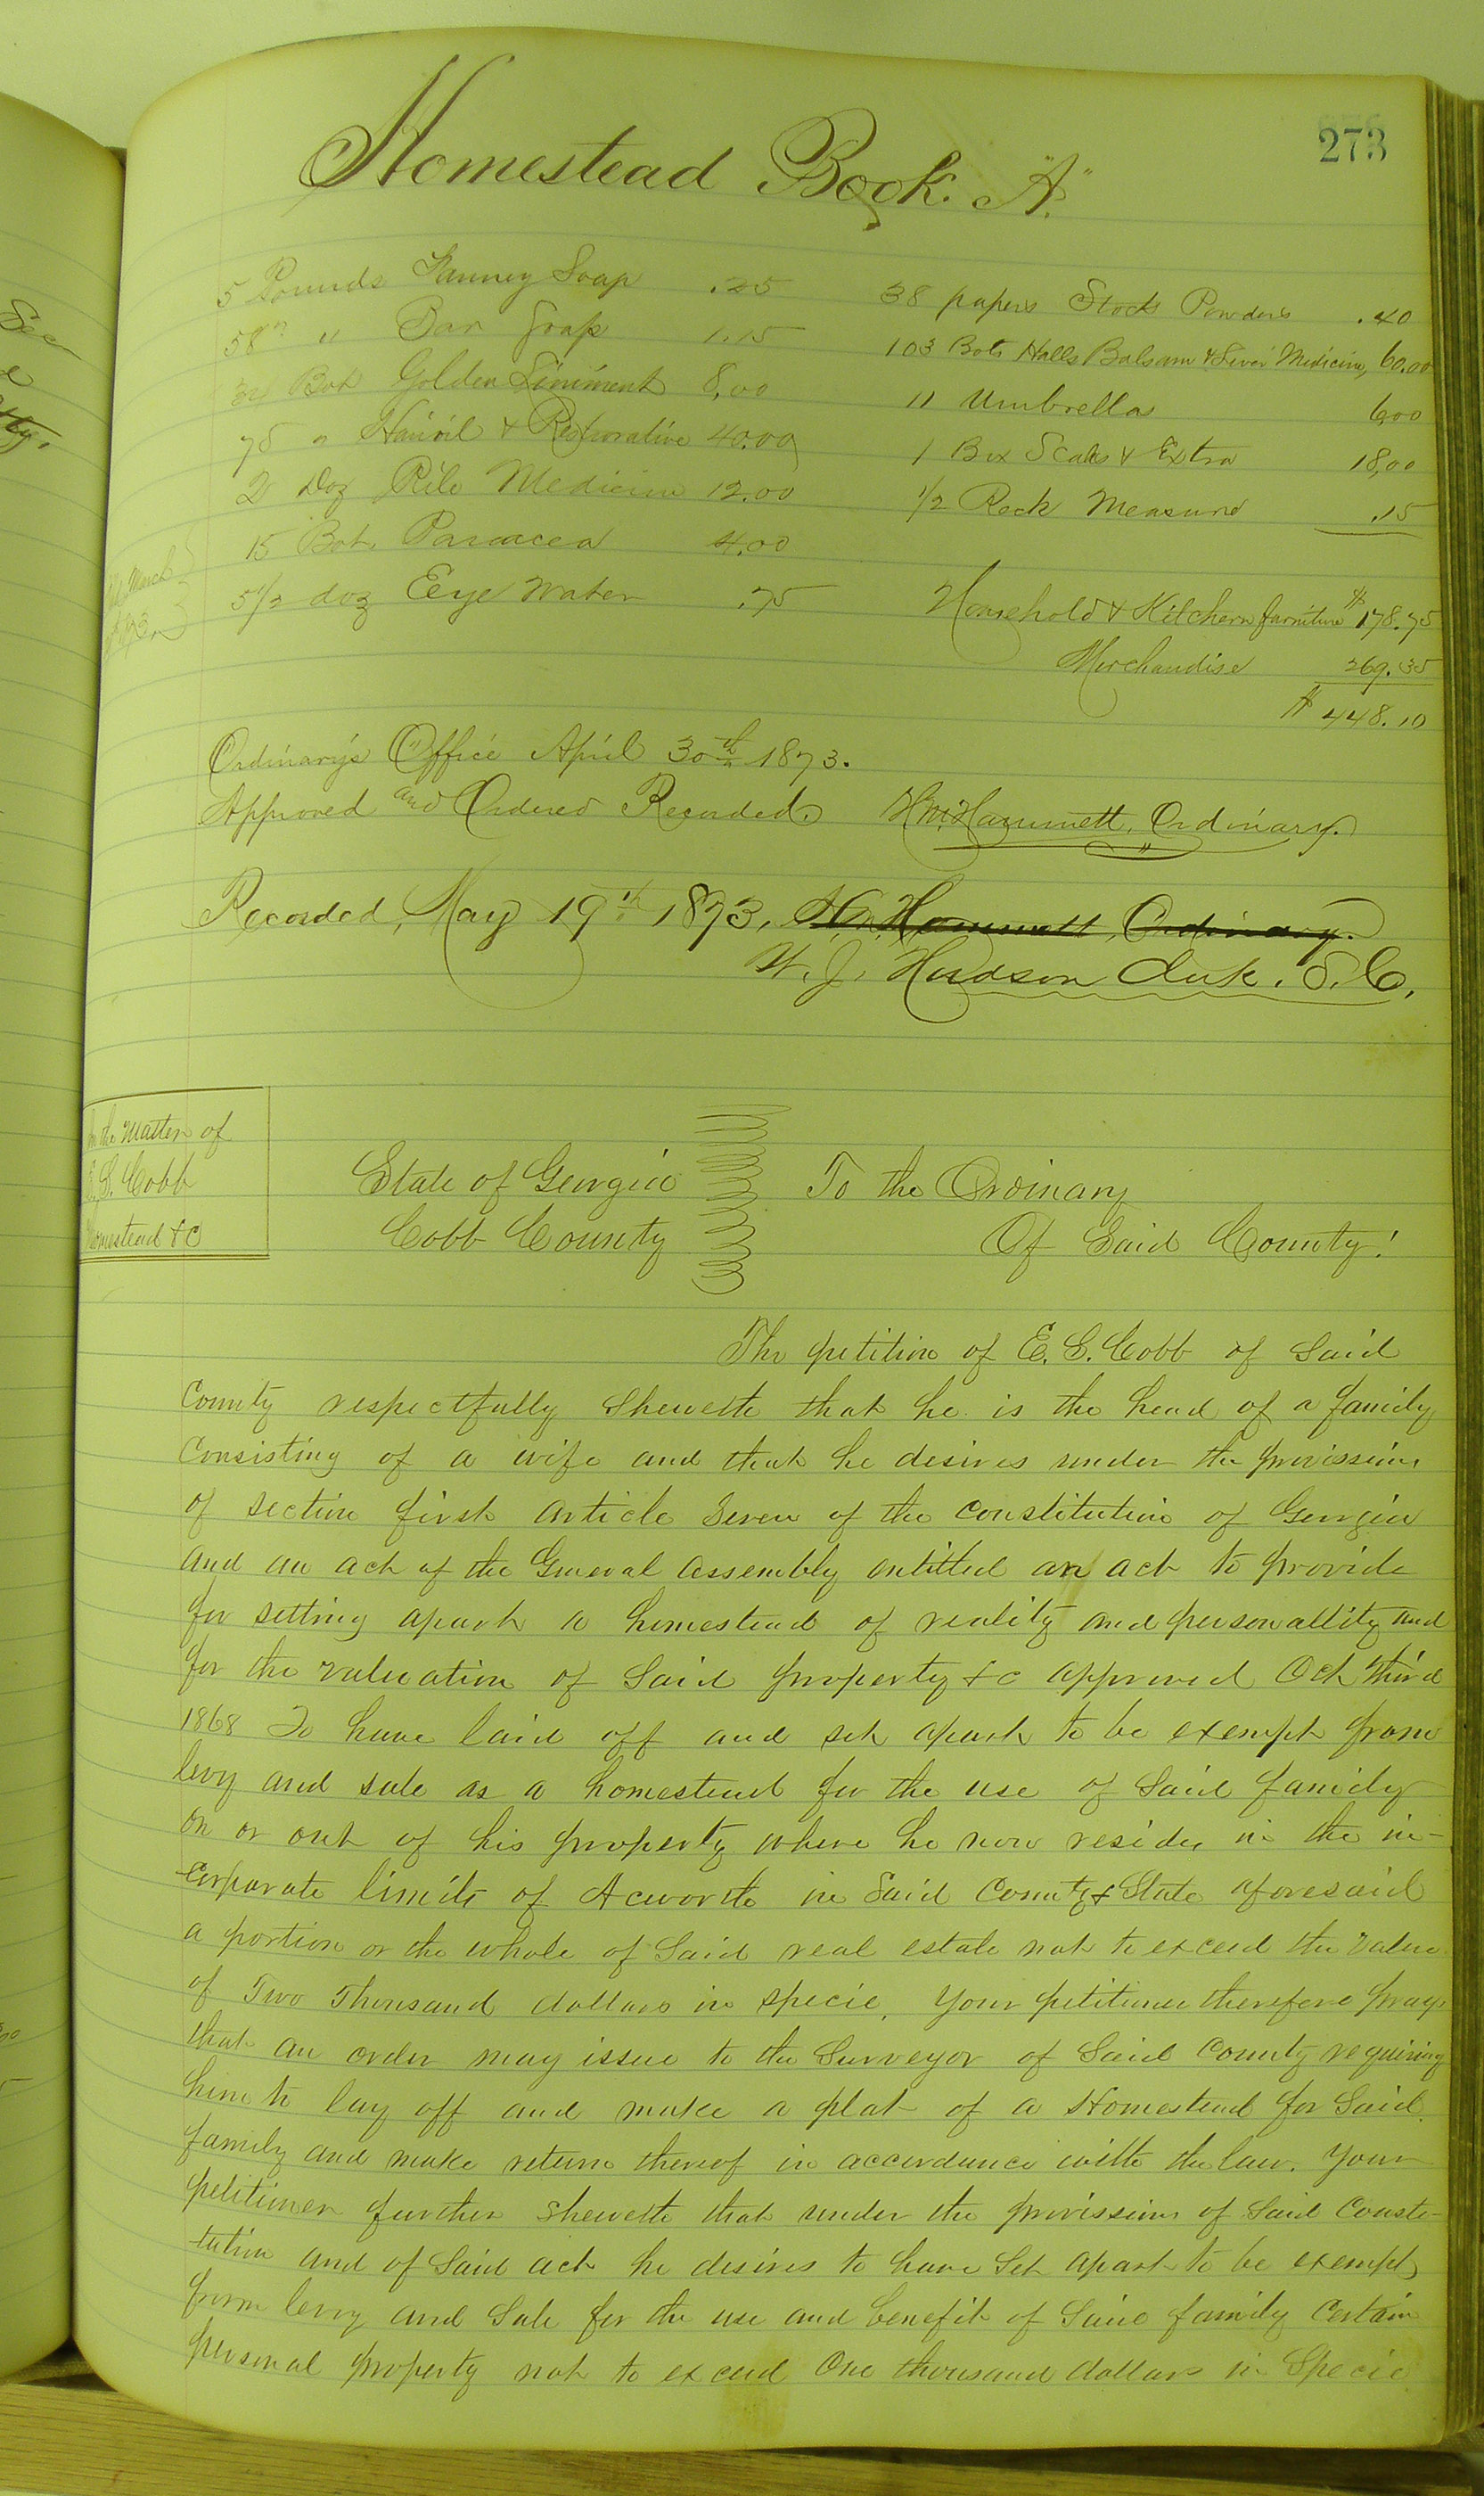 273
Homestead Book "A"
5 Pounds Fanney Soap .25
58 " Bar Soap 1.15
Bot Golden Liniment 8.00
75 " Hairoil & Restorative 40.00
2 Doz Pile Medicine 12.00
15 Bot. Panacea 4.00
5 1/2 doz Eeye Water .75
38 papers Stock Powders .40
103 Bots Halls Balsam & Liver Medicine, 60.00
11 Umbrella 6.00
1 Box Scales & Extra 18.00
1/2 Peck Measure .15
March
Household & Kitchen furniture $178.75
Merchandise 269.35
$448.10
Ordinary's Office April 30th 1873.
Approved and Ordered Recorded. H.M. Hammett, Ordinary.
Recorded, May 19th 1873, H.M. Hammett, Ordinary.
W. J. Hudson Clerk. S.C.
In the Matter of
E. S. Cobb
Homestead &C
State of Georgia
Cobb County
To the Ordinary
Of Said County!
The petition of E. S. Cobb of Said
County respectfully Sheweth that he is the head of a family
Consisting of a wife and that he desires under the provissions
of section first article Seven of the Constitution of Georgia
and an act of the General Assembly entitled an act to provide
for setting apart a homestead of reality and personallity and
for the valuation of Said property &c approved Oct third
1868 To have laid off and set apart to be exempt from
levy and sale as a homestead for the use of Said family
on or out of his property where he now resides in the in-
corporate limits of Acworth in Said County & State aforesaid
a portion or the whole of Said real estate not to exceed the value
of Two Thousand dollars in specie. Your petitioner therefore prays
that an order may issue to the Surveyor of Said County requiring
him to lay off and make a plat of a Homestead for Said
family and make return thereof in accordance with the law. Your
petitioner further Sheweth that under the provissions of Said Consti-
tution and of Said act he desires to have Set apart to be exempt
from levy and Sale for the use and benefit of Said family Certain
personal property not to exceed One thousand dollars in Specie